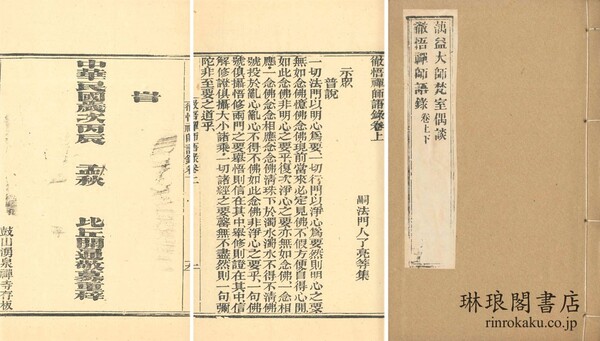 蕅益大師梵室偶談
徹悟禪師語錄 卷上下
徹悟禪師語錄卷上
嗣法門人了亮等集
示眾
普說
一切法門以明心為要一切行門以淨心為要然則明心之要
無如念佛憶佛念佛現前當來必定見佛不假方便自得心開
如此念佛非明心之要乎復次淨心之要亦無如念佛一念相
應一念佛念念相應念念佛清珠下於濁水濁水不得不清佛
號投於亂心亂心不得不佛如此念佛非淨心之要乎一句佛
號俱攝悟修兩門之要舉悟則信在其中舉修則證在其中信
解修證俱攝大小諸乘一切諸經之要罄無不盡然則一句彌
陀非至要之道乎
旹
中華民國歲次丙辰 孟秋 比丘開通敬募重梓
鼓山湧泉禪寺存板
琳琅閣書店
rinrokaku.co.jp